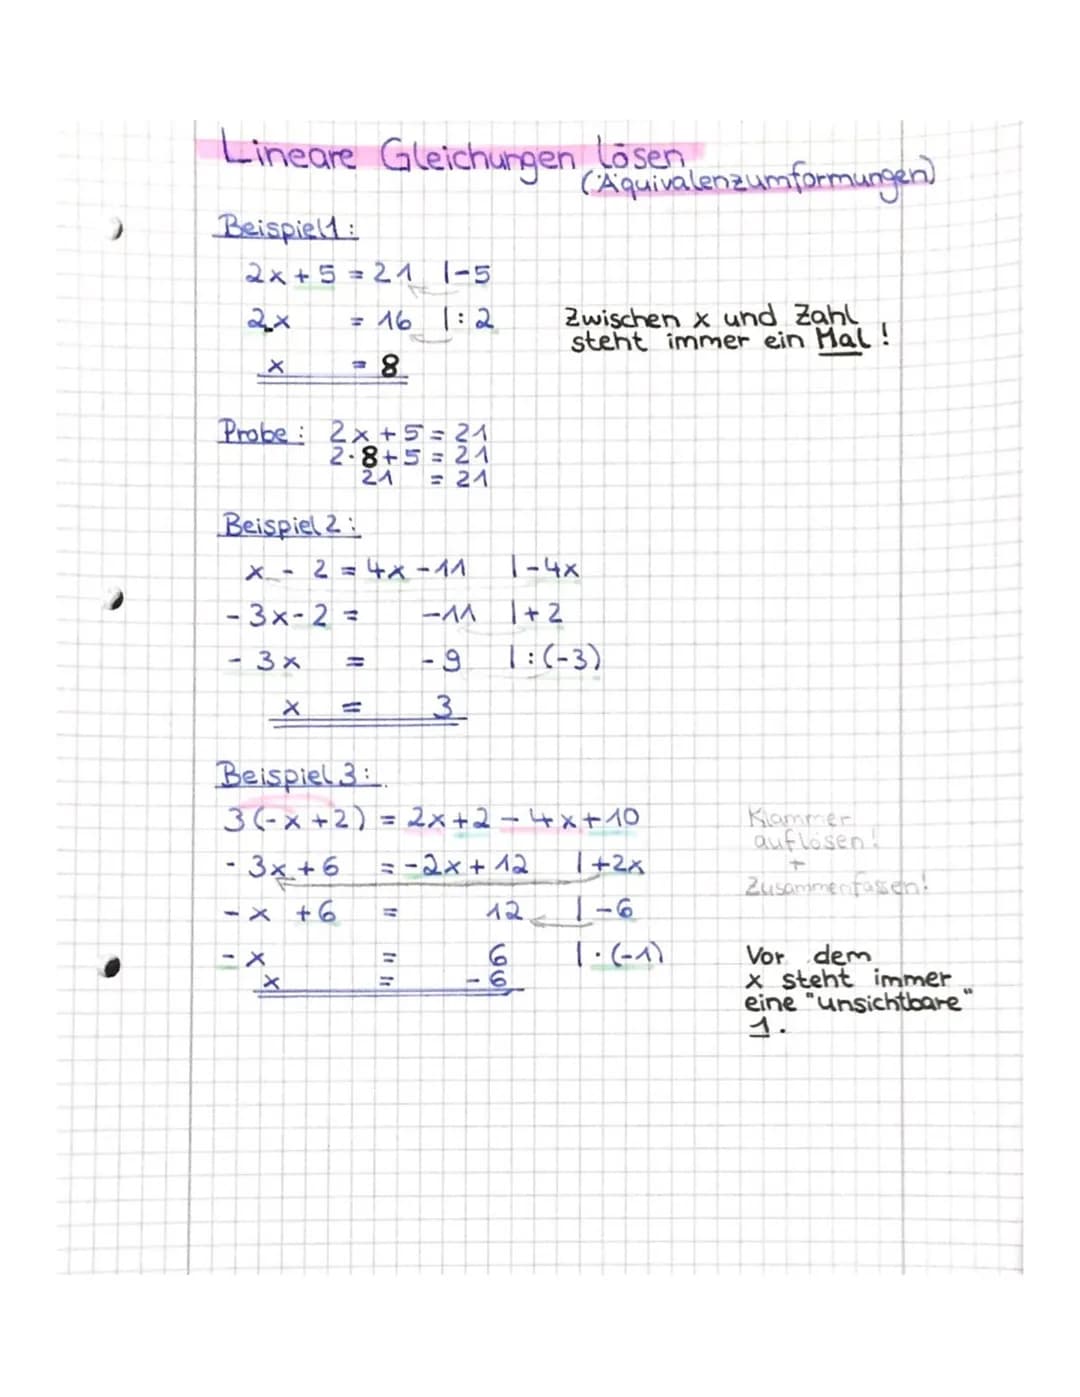 Lineare Gleichungen lösen
(Äquivalenzumformungen)
Beispiel 1:
2x + 5 = 21 |-5
2x = 16 |: 2
Zwischen x und Zahl
steht immer ein Mal!
x = 8
Probe: 2x + 5 = 21
2·8+5 = 21
21 = 21
Beispiel 2:
x - 2 = 4x - 11 |-4x
- 3x - 2 = -11 |+2
- 3x = -9 |:(-3)
x = 3
Beispiel 3:
3(-x+2) = 2x+2-4x+10
Klammer
auflösen!
+
Zusammenfassen!
- 3x + 6 = -2x + 12 |+2x
- x + 6 = 12 |-6
- x = 6 |·(-1)
x = -6
Vor dem
x steht immer
eine "unsichtbare"
1.